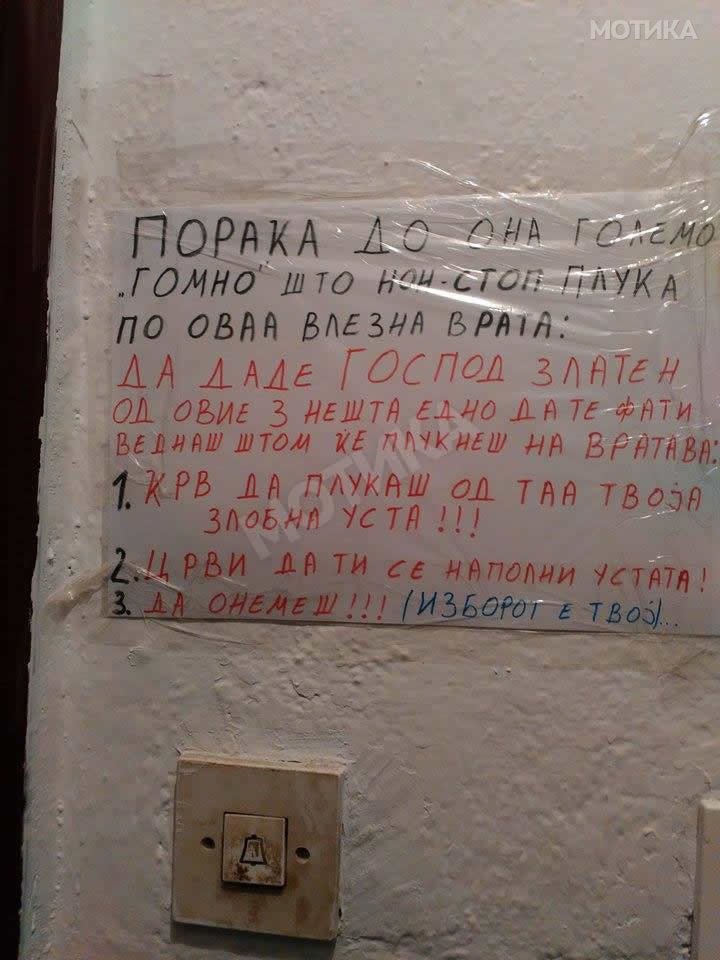 МОТИКА
ПОРАКА ДО ОНА ГОЛЕМО
„ГОМНО" ШТО НОН-СТОП ПЛУКА
ПО ОВАА ВЛЕЗНА ВРАТА:
ДА ДАДЕ ГОСПОД ЗЛАТЕН
ОД ОВИЕ 3 НЕШТА ЕДНО ДА ТЕ ФАТИ
ВЕДНАШ ШТОМ ЌЕ ПЛУКНЕШ НА ВРАТАВА:
1. КРВ ДА ПЛУКАШ ОД ТАА ТВОЈА
ЗЛОБНА УСТА!!!
2. ЦРВИ ДА ТИ СЕ НАПОЛНИ УСТАТА!
3. ДА ОНЕМЕШ!!! (ИЗБОРОТ Е ТВОЈ)...
МОТИКА